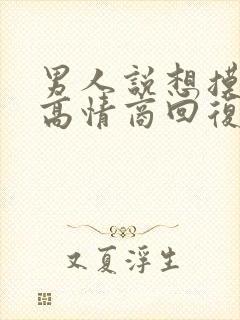 男人說想摸
高情商回復
又夏浮生